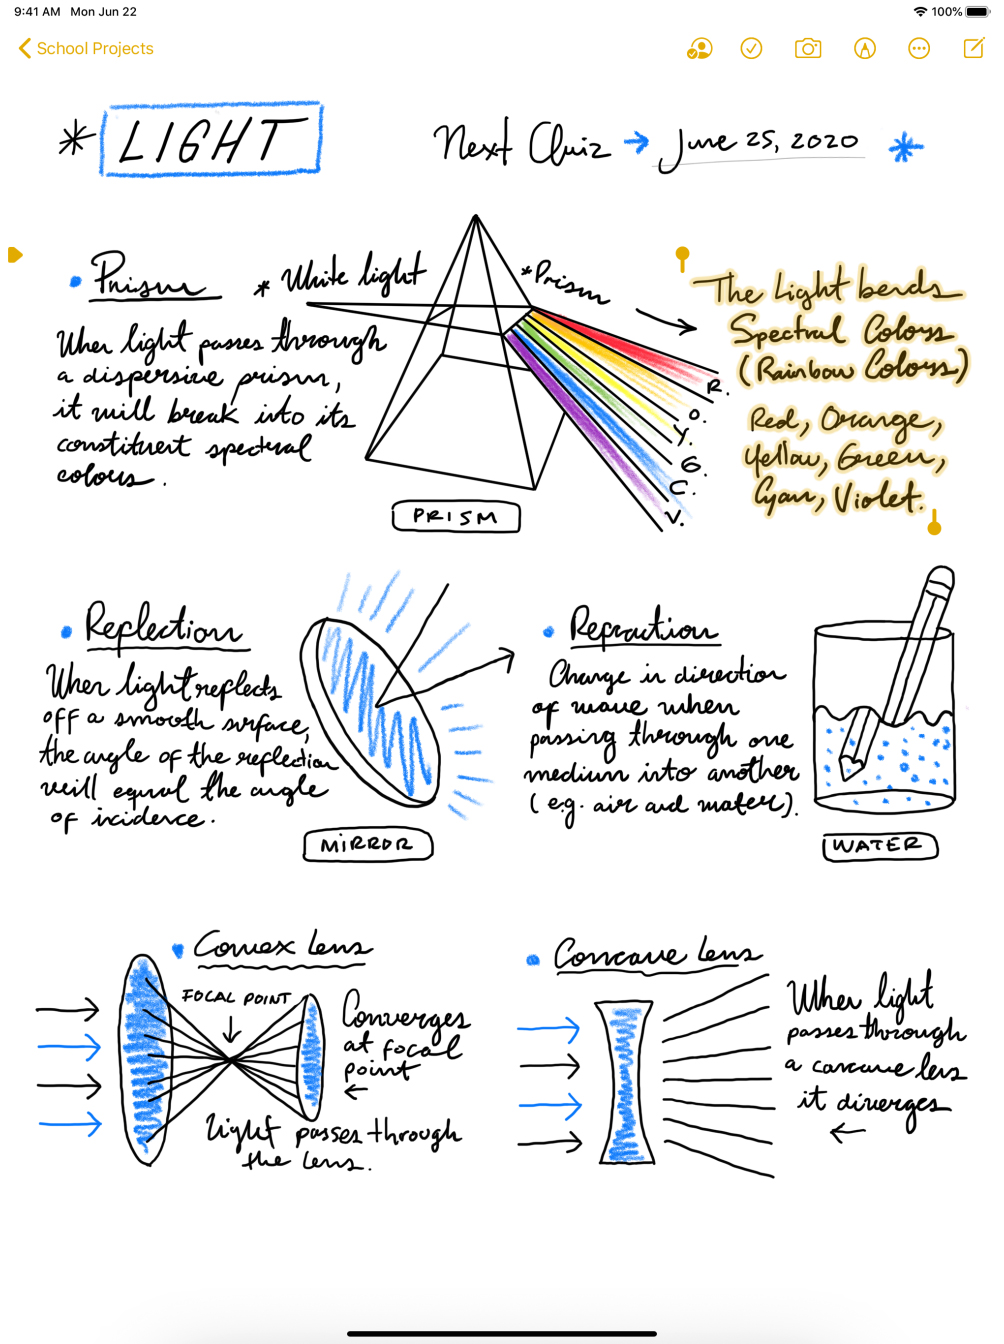 9:41 AM Mon Jun 22
100%
School Projects
* LIGHT
Next Quiz → June 25, 2020 *
• Prism
* White light
*Prism
When light passes through
a dispersive prism,
it will break into its
constituent spectral
colours.
R.
O.
Y.
G.
C.
V.
PRISM
The Light bends
Spectral Colours
(Rainbow Colours)
Red, Orange,
Yellow, Green,
Cyan, Violet.
• Reflection
When light reflects
off a smooth surface,
the angle of the reflection
will equal the angle
of incidence.
MIRROR
• Refraction
Change in direction
of wave when
passing through one
medium into another
(e.g. air and water).
WATER
• Convex Lens
FOCAL POINT
Converges
at focal
point
←
Light passes through
the lens.
• Concave Lens
When light
passes through
a concave lens
it diverges
←